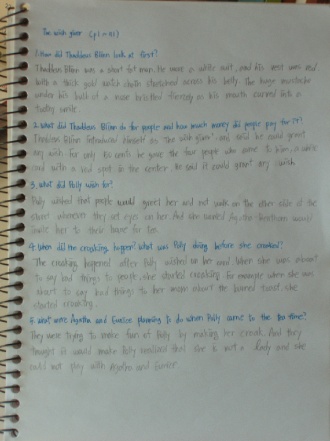 The wish giver (p1~31)
1. How did Thaddeus Blinn look at first?
Thaddeus Blinn was a short fat man. He wore a white suit, and his vest was red
with a thick gold watch chain stretched across his belly. The huge mustache
under his bulb of a nose bristled fiercely as his mouth curved into a
smile.
2. What did Thaddeus Blinn do for people and how much money did people pay for it?
Thaddeus Blinn introduced himself as "the wish giver" and said he could grant
any wish for only 50 cents. He gave the four people who came to him, a white
card with a red spot in the center. He said it could grant any wish.
3. What did Polly wish for?
Polly wished that people would greet her and not walk on the other side of the
street whenever they set eyes on her. And she wanted Agatha Benthorn would
invite her to their house for tea.
4. When did the croaking happen? What was Polly doing before she croaked?
The croaking happened after Polly wished on her card. When she was about
to say bad things to people, she started croaking. For example when she was
about to say bad things to her mean about the burned toast, she
started croaking.
5. What were Agatha and Eunice planning to do when Polly came to the tea time?
They were trying to make fun of Polly by making her croak. And they
thought it would make Polly realized that she is not a lady and she
could not play with Agatha and Eunice.